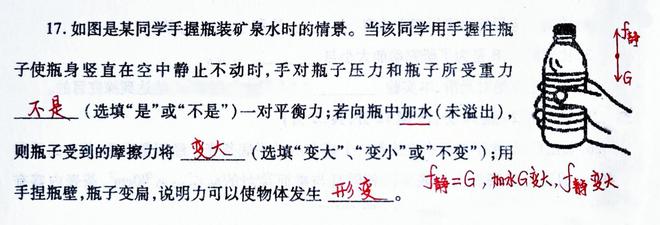 17. 如图是某同学手握瓶装矿泉水时的情景。当该同学用手握住瓶
子使瓶身竖直在空中静止不动时,手对瓶子压力和瓶子所受重力
不是 (选填“是”或“不是”)一对平衡力;若向瓶中加水(未溢出),
则瓶子受到的摩擦力将 变大 (选填“变大”、“变小”或“不变”);用
手捏瓶壁,瓶子变扁,说明力可以使物体发生 形变 。
f静=G,加水G变大,f静变大
f静
G